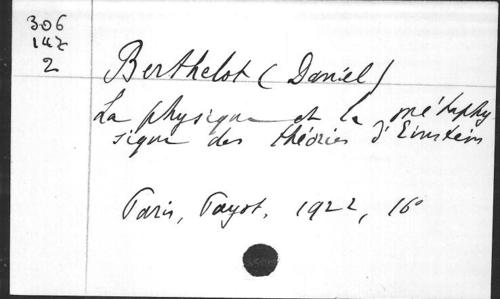 306
147
2
Berthelot (Daniel)
La physique et la métaphy
sique des théories d'Einstein
Paris, Payot, 1922, 16°